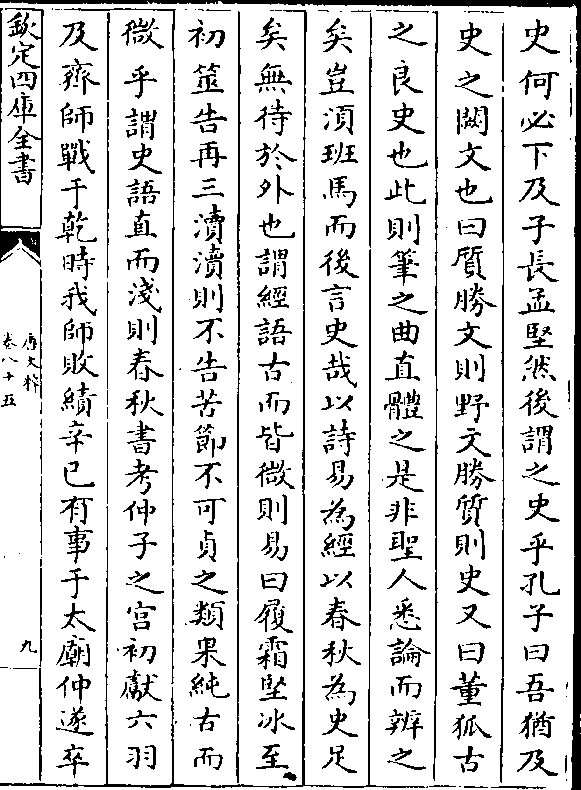 史何必下及子長孟堅然後謂之史乎孔子曰吾猶及
史之闕文也曰質勝文則野文勝質則史又曰董狐古
之良史也此則筆之曲直體之是非聖人悉論而辨之
矣豈湏班馬而後言史哉以詩易為經以春秋為史足
矣無待於外也謂經語古而皆微則易曰履霜堅冰至
初筮告再三瀆瀆則不告苦節不可貞之類果純古而
微乎謂史語直而淺則春秋書考仲子之宫初獻六羽
及齊師戰于乾時我師敗績辛已有事于太廟仲遂卒
欽定四庫全書
唐文粹
卷八十五
九